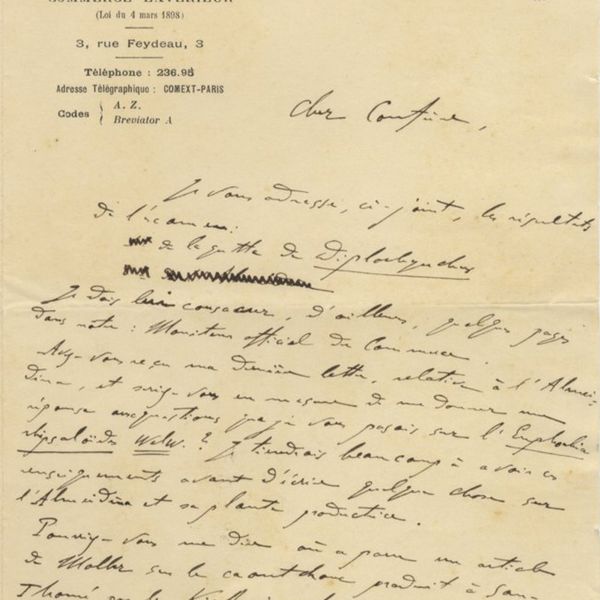 COMMERCE EXTÉRIEUR
(Loi du 4 mars 1898)
3, rue Feydeau, 3
Téléphone : 236.95
Adresse Télégraphique : COMEXT-PARIS
Codes { A. Z.
Breviator A
Cher Confrère,
Je vous adresse, ci-joint, les résultats
de l'examen :
de la gutta de Diplorhynchus
Je dois lui consacrer, d'ailleurs, quelques pages
dans notre : Moniteur officiel du Commerce.
Avez-vous reçu ma dernière lettre, relative à l'Almei-
dina, et seriez-vous en mesure de me donner une
réponse aux questions que je vous posais sur l'Euphorbia
rhipsaloïdes Welw. ? Je tiendrais beaucoup à avoir ces
renseignements avant d'écrire quelque chose sur
l'Almeidina et sa plante productrice.
Pourriez-vous me dire où a paru un article
de Moller sur le caoutchouc produit à San-
Thomé par le